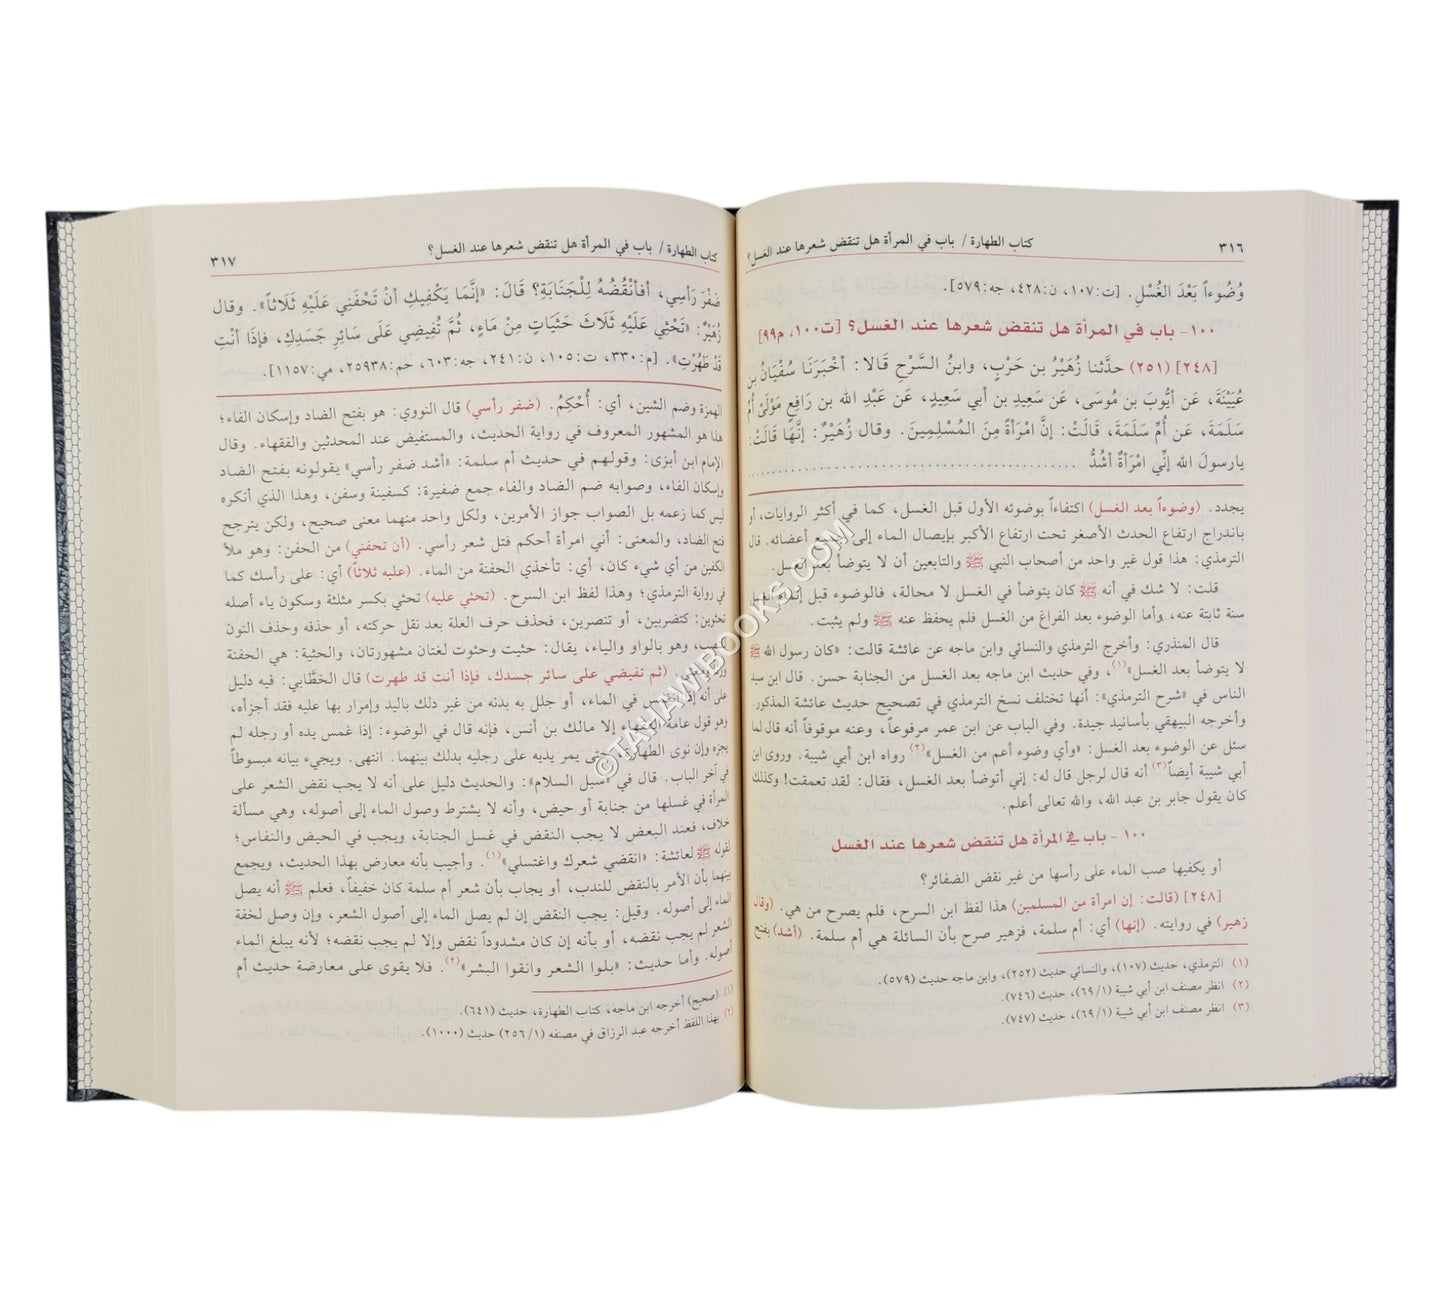 ٣١٦ كتاب الطهارة / باب في المرأة هل تنقض شعرها عند الغسل؟
وُضُوءاً بَعْدَ الغُسْلِ. [ت:١٠٧، ن:٤٢٨، جه:٥٧٩].
١٠٠- باب في المرأة هل تنقض شعرها عند الغسل؟ [ت١٠٠، م٩٩]
[٢٤٨] (٢٥١) حدَّثنا زُهَيْرُ بن حَرْبٍ، وابنُ السَّرْحِ قَالا: أخْبَرَنَا سُفْيَانُ بن
عُيَيْنَةَ، عَن أيُّوبَ بن مُوسَى، عَن سَعِيدِ بن أبي سَعِيدٍ، عَن عَبْدِ الله بن رَافِعٍ مَوْلَى أُمِّ
سَلَمَةَ، عَن أُمِّ سَلَمَةَ، قَالَتْ: إنَّ امْرَأةً مِنَ المُسْلِمِينَ. وقال زُهَيْرٌ: إنَّهَا قَالَتْ:
يارسولَ الله إنِّي امْرَأةٌ أشُدُّ ........................................
يجدد. (وضوءاً بعد الغسل) اكتفاءاً بوضوئه الأول قبل الغسل، كما في أكثر الروايات، أو
باندراج ارتفاع الحدث الأصغر تحت ارتفاع الأكبر بإيصال الماء إلى أعضائه. قال
الترمذي: هذا قول غير واحد من أصحاب النبي ﷺ والتابعين أن لا يتوضأ بعد الغسل.
قلت: لا شك في أنه ﷺ كان يتوضأ في الغسل لا محالة، فالوضوء قبل الغسل
سنة ثابتة عنه، وأما الوضوء بعد الفراغ من الغسل فلم يحفظ عنه ﷺ ولم يثبت.
قال المنذري: وأخرج الترمذي والنسائي وابن ماجه عن عائشة قالت: «كان رسول الله ﷺ
لا يتوضأ بعد الغسل»(١)، وفي حديث ابن ماجه بعد الغسل من الجنابة حسن. قال ابن سيد
الناس في «شرح الترمذي»: أنها تختلف نسخ الترمذي في تصحيح حديث عائشة المذكور.
وأخرجه البيهقي بأسانيد جيدة. وفي الباب عن ابن عمر مرفوعاً، وعنه موقوفاً أنه قال لما
سئل عن الوضوء بعد الغسل: «وأي وضوء أعم من الغسل»(٢) رواه ابن أبي شيبة. وروى ابن
أبي شيبة أيضاً(٣) أنه قال لرجل قال له: إني أتوضأ بعد الغسل، فقال: لقد تعمقت! وكذلك
كان يقول جابر بن عبد الله، والله تعالى أعلم.
١٠٠ - باب في المرأة هل تنقض شعرها عند الغسل
أو يكفيها صب الماء على رأسها من غير نقض الضفائر؟
[٢٤٨] (قالت: إن امرأة من المسلمين) هذا لفظ ابن السرح، فلم يصرح من هي. (وقال
زهير) في روايته. (إنها) أي: أم سلمة، فزهير صرح بأن السائلة هي أم سلمة. (أشد) بفتح
(١) الترمذي، حديث (١٠٧)، والنسائي حديث (٢٥٢)، وابن ماجه حديث (٥٧٩).
(٢) انظر مصنف ابن أبي شيبة (١/ ٦٩)، حديث (٧٤٦).
(٣) انظر مصنف ابن أبي شيبة (١/ ٦٩)، حديث (٧٤٧).
كتاب الطهارة / باب في المرأة هل تنقض شعرها عند الغسل؟ ٣١٧
ضَفْرَ رَأسِي، أفأنْقُضُهُ لِلْجَنَابَةِ؟ قَالَ: «إنَّمَا يَكْفِيكِ أنْ تَحْفَنِي عَلَيْهِ ثَلَاثاً». وقال
زُهَيْرٌ: «تَحْثِي عَلَيْهِ ثَلَاثَ حَثَيَاتٍ مِنْ مَاءٍ، ثُمَّ تُفِيضِي عَلَى سَائِرِ جَسَدِكِ، فإذَا أنْتِ
قَدْ طَهُرْتِ». [م:٣٣٠، ت:١٠٥، ن:٢٤١، جه:٦٠٣، حم:٢٥٩٣٨، مي:١١٥٧].
الهمزة وضم الشين، أي: أُحْكِمُ. (ضفر رأسي) قال النووي: هو بفتح الضاد وإسكان الفاء؛
هذا هو المشهور المعروف في رواية الحديث، والمستفيض عند المحدثين والفقهاء. وقال
الإمام ابن أبزى: وقولهم في حديث أم سلمة: «أشد ضفر رأسي» يقولونه بفتح الضاد
وإسكان الفاء، وصوابه ضم الضاد والفاء جمع ضفيرة: كسفينة وسفن، وهذا الذي أنكره
ليس كما زعمه بل الصواب جواز الأمرين، ولكل واحد منهما معنى صحيح، ولكن يترجح
فتح الضاد، والمعنى: أني امرأة أحكم فتل شعر رأسي. (أن تحفني) من الحفن: وهو ملأ
الكفين من أي شيء كان، أي: تأخذي الحفنة من الماء. (عليه ثلاثاً) أي: على رأسك كما
في رواية الترمذي؛ وهذا لفظ ابن السرح. (تحثي عليه) تحثي بكسر مثلثة وسكون ياء أصله
تحثوين: كتضربين، أو تنصرين، فحذف حرف العلة بعد نقل حركته، أو حذفه وحذف النون
وهو بالواو والياء، يقال: حثيت وحثوت لغتان مشهورتان، والحثية: هي الحفنة
(ثم تفيضي على سائر جسدك، فإذا أنت قد طهرت) قال الخطَّابي: فيه دليل
على أنه إذا انغمس في الماء، أو جلل به بدنه من غير دلك باليد وإمرار بها عليه فقد أجزأه،
وهو قول عامة الفقهاء إلا مالك بن أنس، فإنه قال في الوضوء: إذا غمس يده أو رجله لم
يجزه وإن نوى الطهارة، حتى يمر يديه على رجليه بدلك بينهما. انتهى. ويجيء بيانه مبسوطاً
في آخر الباب. قال في «سبل السلام»: والحديث دليل على أنه لا يجب نقض الشعر على
المرأة في غسلها من جنابة أو حيض، وأنه لا يشترط وصول الماء إلى أصوله، وهي مسألة
خلاف، فعند البعض لا يجب النقض في غسل الجنابة، ويجب في الحيض والنفاس؛
لقوله ﷺ لعائشة: «انقضي شعرك واغتسلي»(١). وأجيب بأنه معارض بهذا الحديث، ويجمع
بينهما بأن الأمر بالنقض للندب، أو يجاب بأن شعر أم سلمة كان خفيفاً، فعلم ﷺ أنه يصل
الماء إلى أصوله. وقيل: يجب النقض إن لم يصل الماء إلى أصول الشعر، وإن وصل لخفة
الشعر لم يجب نقضه، أو بأنه إن كان مشدوداً نقض وإلا لم يجب نقضه؛ لأنه يبلغ الماء
أصوله. وأما حديث: «بلوا الشعر وانقوا البشر»(٢). فلا يقوى على معارضة حديث أم
(١) (صحيح) أخرجه ابن ماجة، كتاب الطهارة، حديث (٦٤١).
(٢) بهذا اللفظ أخرجه عبد الرزاق في مصنفه (١/ ٢٥٦) حديث (١٠٠٠).
©TAHAWIBOOKS.COM